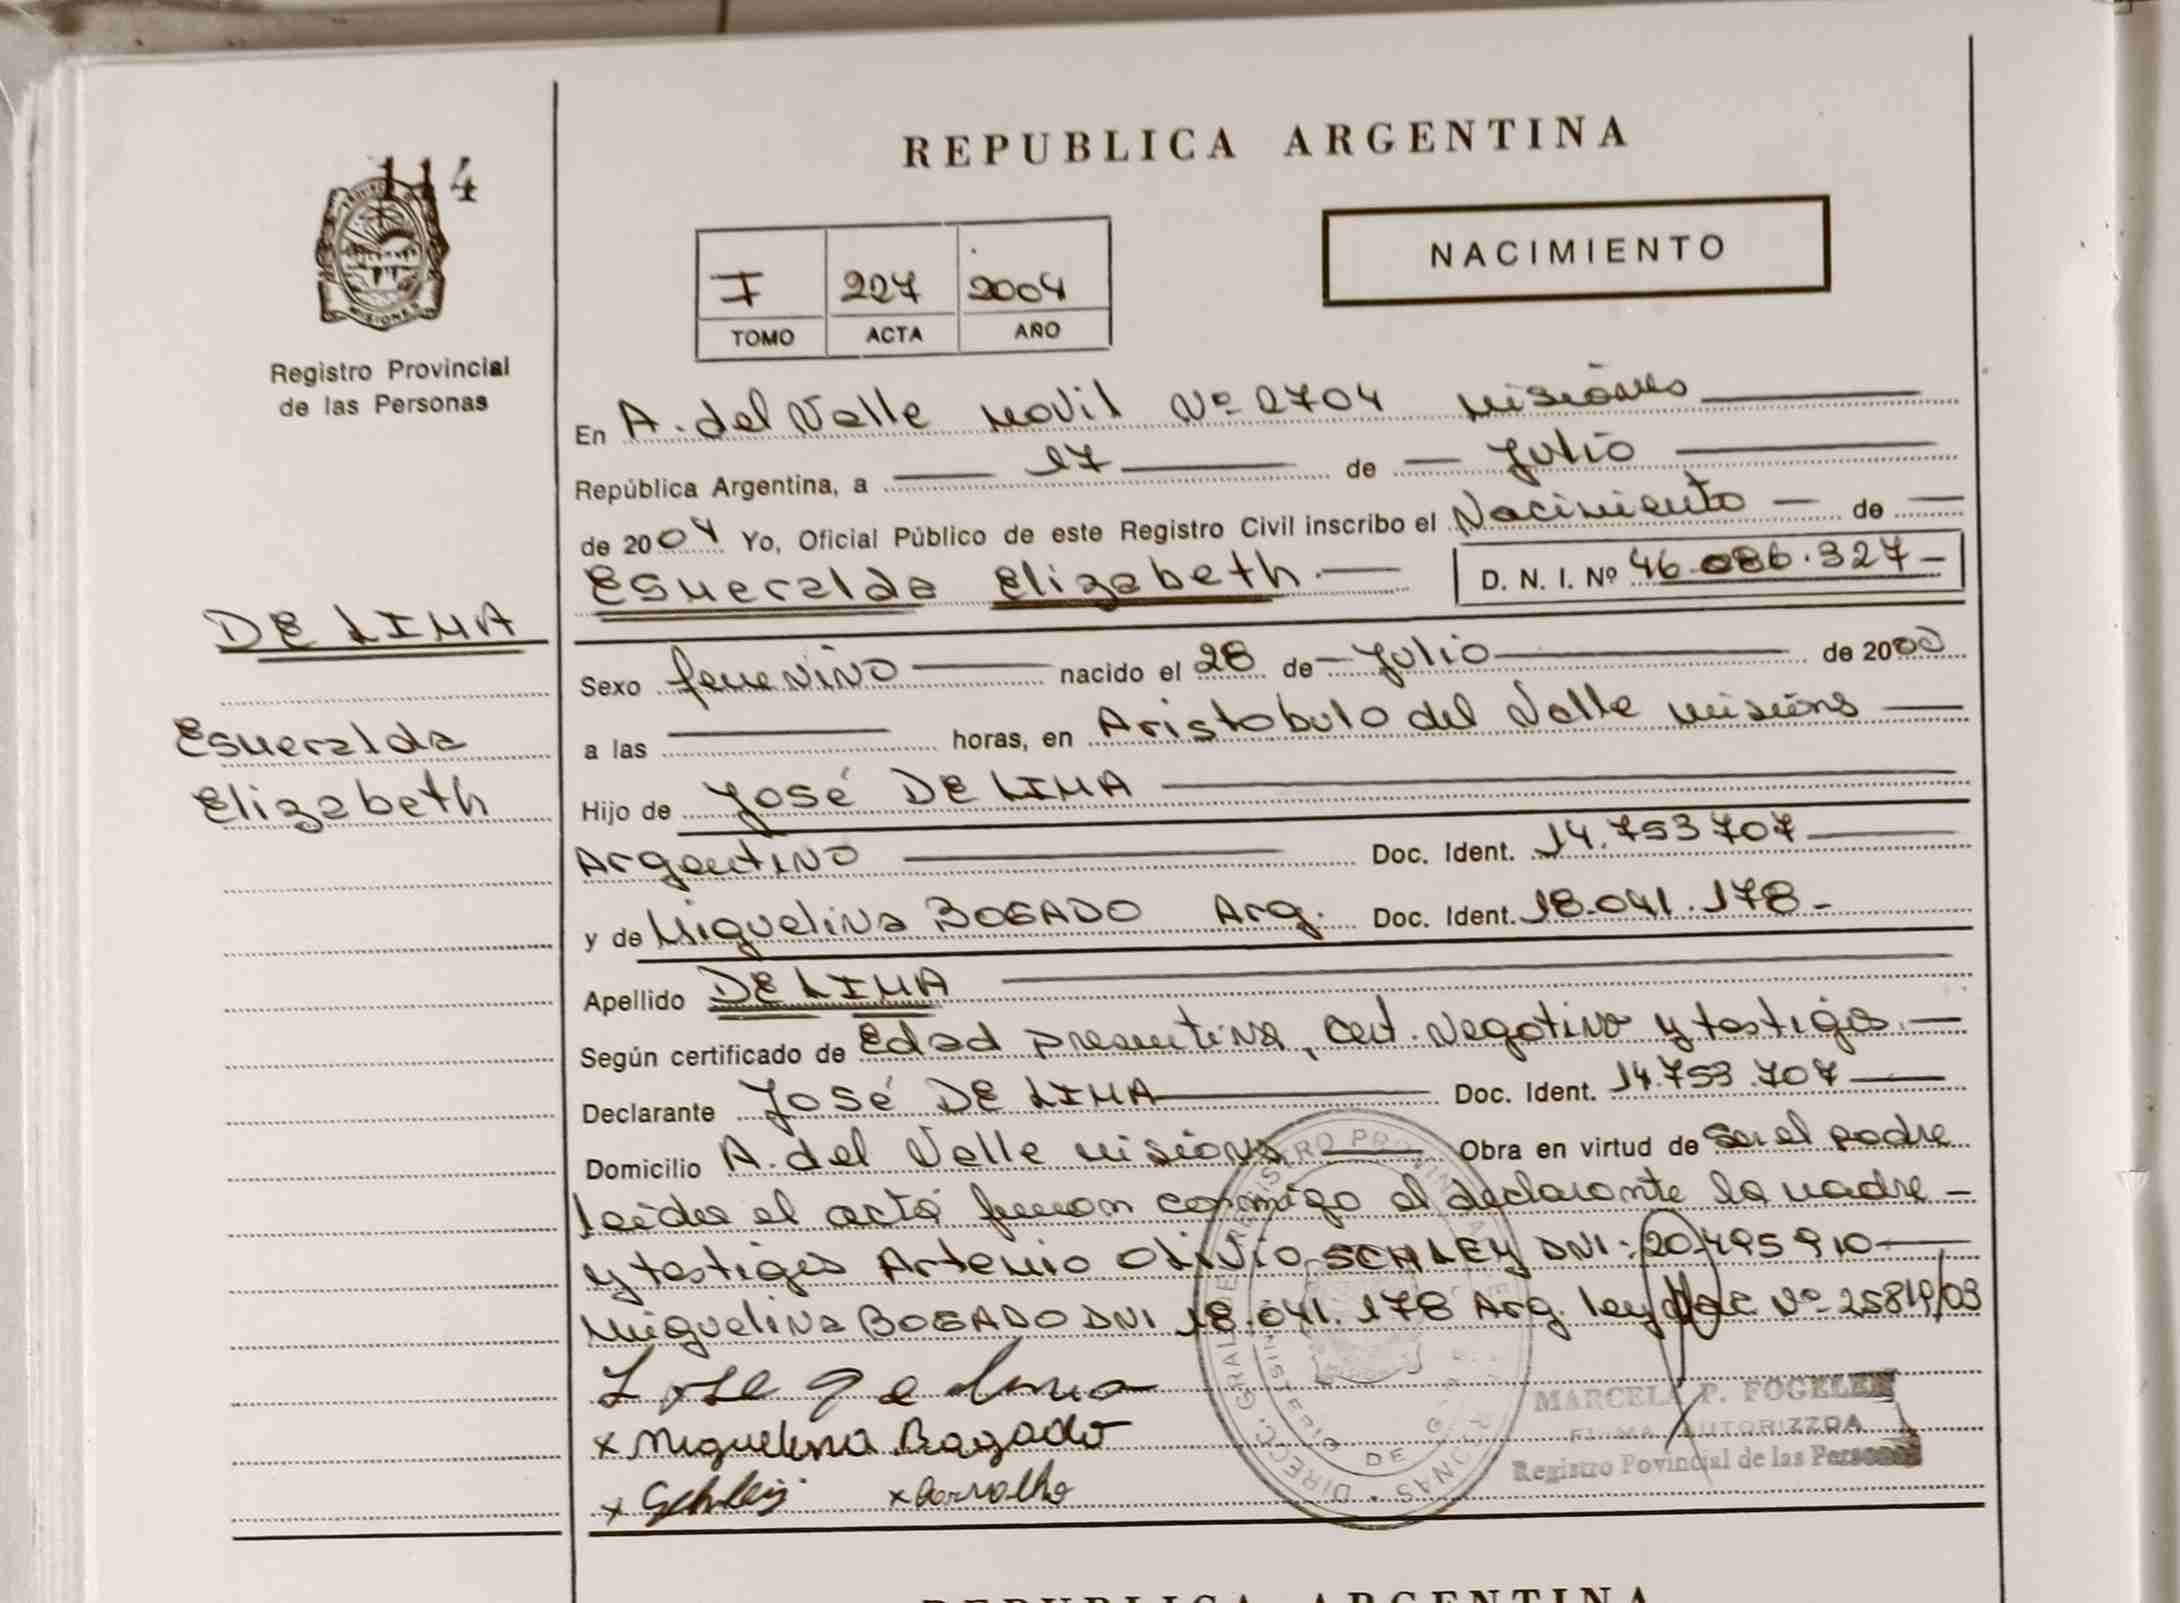 114
REPUBLICA ARGENTINA
NACIMIENTO
I 227 2004
TOMO ACTA AÑO
MISIONES
Registro Provincial
de las Personas
En A. del Valle Movil Nº 2704 Misiones
República Argentina, a 17 de Julio
de 2004 Yo, Oficial Público de este Registro Civil inscribo el Nacimiento de
Esmeralda Elizabeth D. N. I. Nº 46.086.327
DE LIMA
Esmeralda
Elizabeth
Sexo femenino nacido el 28 de Julio de 2000
a las horas, en Aristobulo del Valle Misiones
Hijo de José DE LIMA
Argentino Doc. Ident. 14.753707
y de Miguelina BOGADO Arg. Doc. Ident. 18.041.178
Apellido DE LIMA
Según certificado de Edad presuntiva, cert. Negativo y testigos
Declarante José DE LIMA Doc. Ident. 14.753.707
Domicilio A. del Valle Misiones Obra en virtud de ser el padre
leida el acta firman conmigo el declarante la madre
y testigos Artemio Olivio SCHLEY DNI. 20.495910
Miguelina BOGADO DNI 18.041.178 Arg. ley Nº 25819/03
Jose de Lima
x Miguelina Bogado
x Schley x Carvalho
MARCELA P. FOGELER
FIRMA AUTORIZZDA
Registro Povincial de las Personas
REPUBLICA ARGENTINA